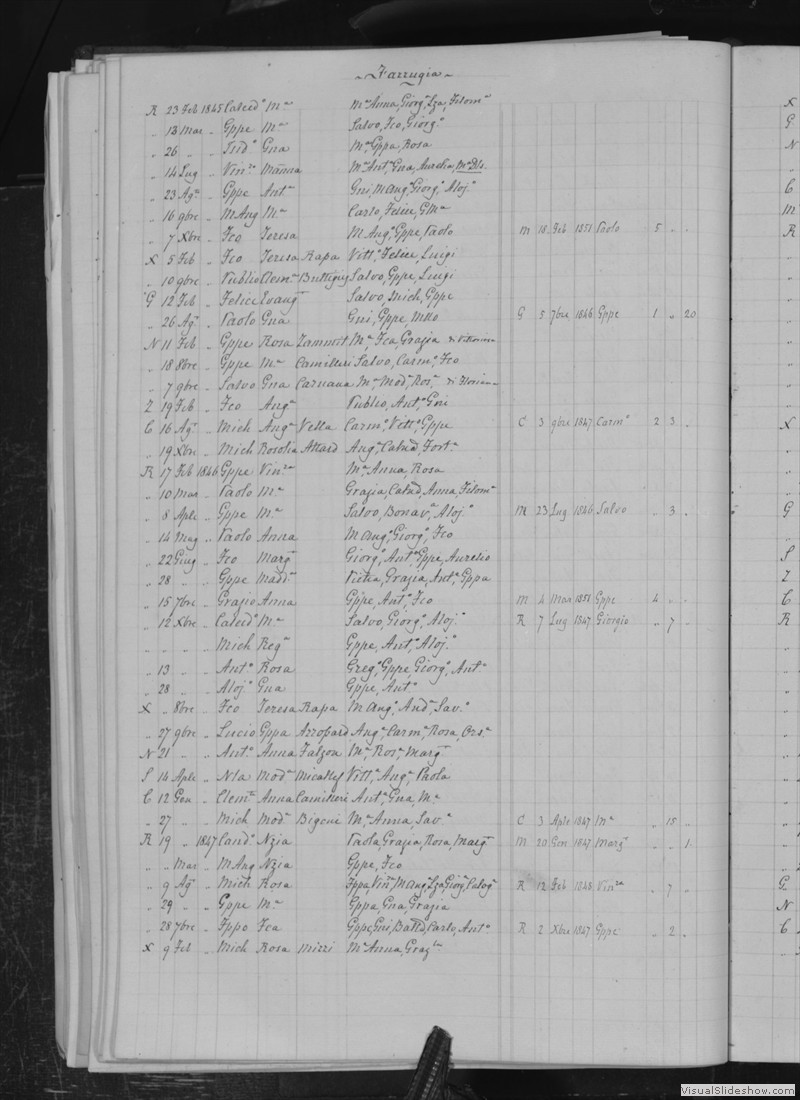 Farrugia
R 23 Feb 1845 Calced.º M.ª M.ª Anna, Giorg.ª Lza, Filom.ª
„ 13 Mar „ Gppe M.ª Salvo, Fco, Giorg.º
„ 26 „ „ Gna M.ª Gppa, Rosa
„ 14 Lug „ Vin.zo Manna M.ª Ant.ª Gna, Aurelia, M.ª Dls.
„ 23 Ag.º „ Gppe Ant.ª Gni, M Ang.º Giorg.º Aloj.º
„ 16 9bre „ M Ang M.ª Carlo, Felice, G M.ª
„ 7 Xbre „ Fco Teresa M Ang.º Gppe, Paolo M 18 Feb 1851 Paolo 5 „ „
X 5 Feb „ Fco Teresa Rapa Vitt.º Felice, Luigi
„ 10 9bre „ Publio Clem.ª Buttigieg Salvo, Gppe, Luigi
G 12 Feb „ Felice Evang.ª Salvo, Mich, Gppe
„ 26 Ag.º „ Paolo Gna Gni, Gppe, G 5 7bre 1846 Gppe 1 „ 20
N 11 Feb „ Gppe Rosa Zammit M.ª Fca, Grazia di Vittoriosa
„ 18 8bre „ Gppe M.ª Camilleri Salvo, Carm.º Fco
„ 7 9bre „ Salvo Gna Caruana M.ª Mad.ª Ros.ª di Floriana
Z 19 Feb „ Fco Ang.ª Publio, Ant.º Gni
C 16 Ag.º „ Mich Ang.ª Vella Carm.º Vitt.º Gppe C 3 9bre 1847 Carm.º 2 3 „
„ 19 Xbre „ Mich Rosolia Attard Ang.ª Fort.ª
R 17 Feb 1846 Gppe Vin.za M.ª Anna, Rosa
„ 10 Mar „ Paolo M.ª Grazia, Anna, Filom.ª
„ 8 Aple „ Gppe M.ª Salvo, Bonav.ª Aloj.º M 23 Lug 1846 Salvo „ 3 „
„ 14 Mag „ Paolo Anna M Ang.º Giorg.º Fco
„ 22 Giug „ Fco Marg.ª Giorg.º Ant.º Gppe, Aurelio
„ 28 „ „ Gppe Madd.ª Grazia, Ant.ª Gppa
„ 15 7bre „ Grazio Anna Gppe, Ant.º Fco M 4 Mar 1851 Gppe 4 „ „
„ 12 Xbre „ Calced.º M.ª Salvo, Giorg.º Aloj.º R 7 Lug 1847 Giorgio „ 7 „
„ „ „ „ Mich Reg.ª Gppe, Ant.º Aloj.º
„ 13 „ „ Ant.º Rosa Greg.º Gppe, Giorg.º Ant.º
„ 28 „ „ Aloj.º Gna Gppe, Ant.º
X „ 8bre „ Fco Teresa Rapa M Ang.º And.ª Sav.º
„ 27 9bre „ Lucio Gppa Azzopard Ang.ª Carm.ª Rosa, Ors.ª
N 21 „ „ Ant.º Anna Falzon M.ª Ros.ª Marg.ª
S 14 Aple „ Nla Mod.ª Micallef Vitt.ª Ang.ª Paola
C 12 Gen „ Clem.te Anna Camilleri Ant.ª Gna, M.ª
„ 27 „ „ Mich Mod.ª Bigeni M.ª Anna, Sav.ª C 3 Aple 1847 M.ª „ 15 „
R 19 „ 1847 Cand.º Nzia Paola, Grazia, Rosa, Marg.ª M 20 Gen 1847 Marg.ª „ „ 1
„ „ Mar „ M Ang Nzia Gppe, Fco
„ 9 Ag.º „ Mich Rosa Fppa Vin.za M Ang.ª Lza Giorg.ª Calog.ª R 12 Feb 1848 Vin.za „ 7 „
„ 29 „ „ Gppe M.ª Gppa, Gna, Grazia
„ 28 7bre „ Fppo Fca Gppe, Gni, Carlo, Ant.º R 2 Xbre 1847 Gppe „ 2 „
X 9 Feb „ Mich Rosa Mizzi M.ª Anna, Graz.la
VisualSlideshow.com